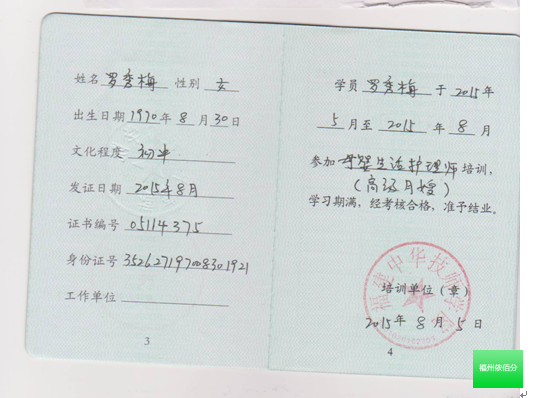 姓名 罗秀梅 性别 女
出生日期 1970 年 8 月 30 日
文化程度 初中
发证日期 2015年8月
证书编号 05114375
身份证号 352627197008301921
工作单位
3
学员 罗秀梅 于 2015 年
5 月至 2015 年 8 月
参加 母婴生活护理师 培训,
(高级月嫂)
学习期满,经考核合格,准予结业。
福建中华技师学院
培训单位(章)
2015 年 8 月 5 日
4
福州依佰分